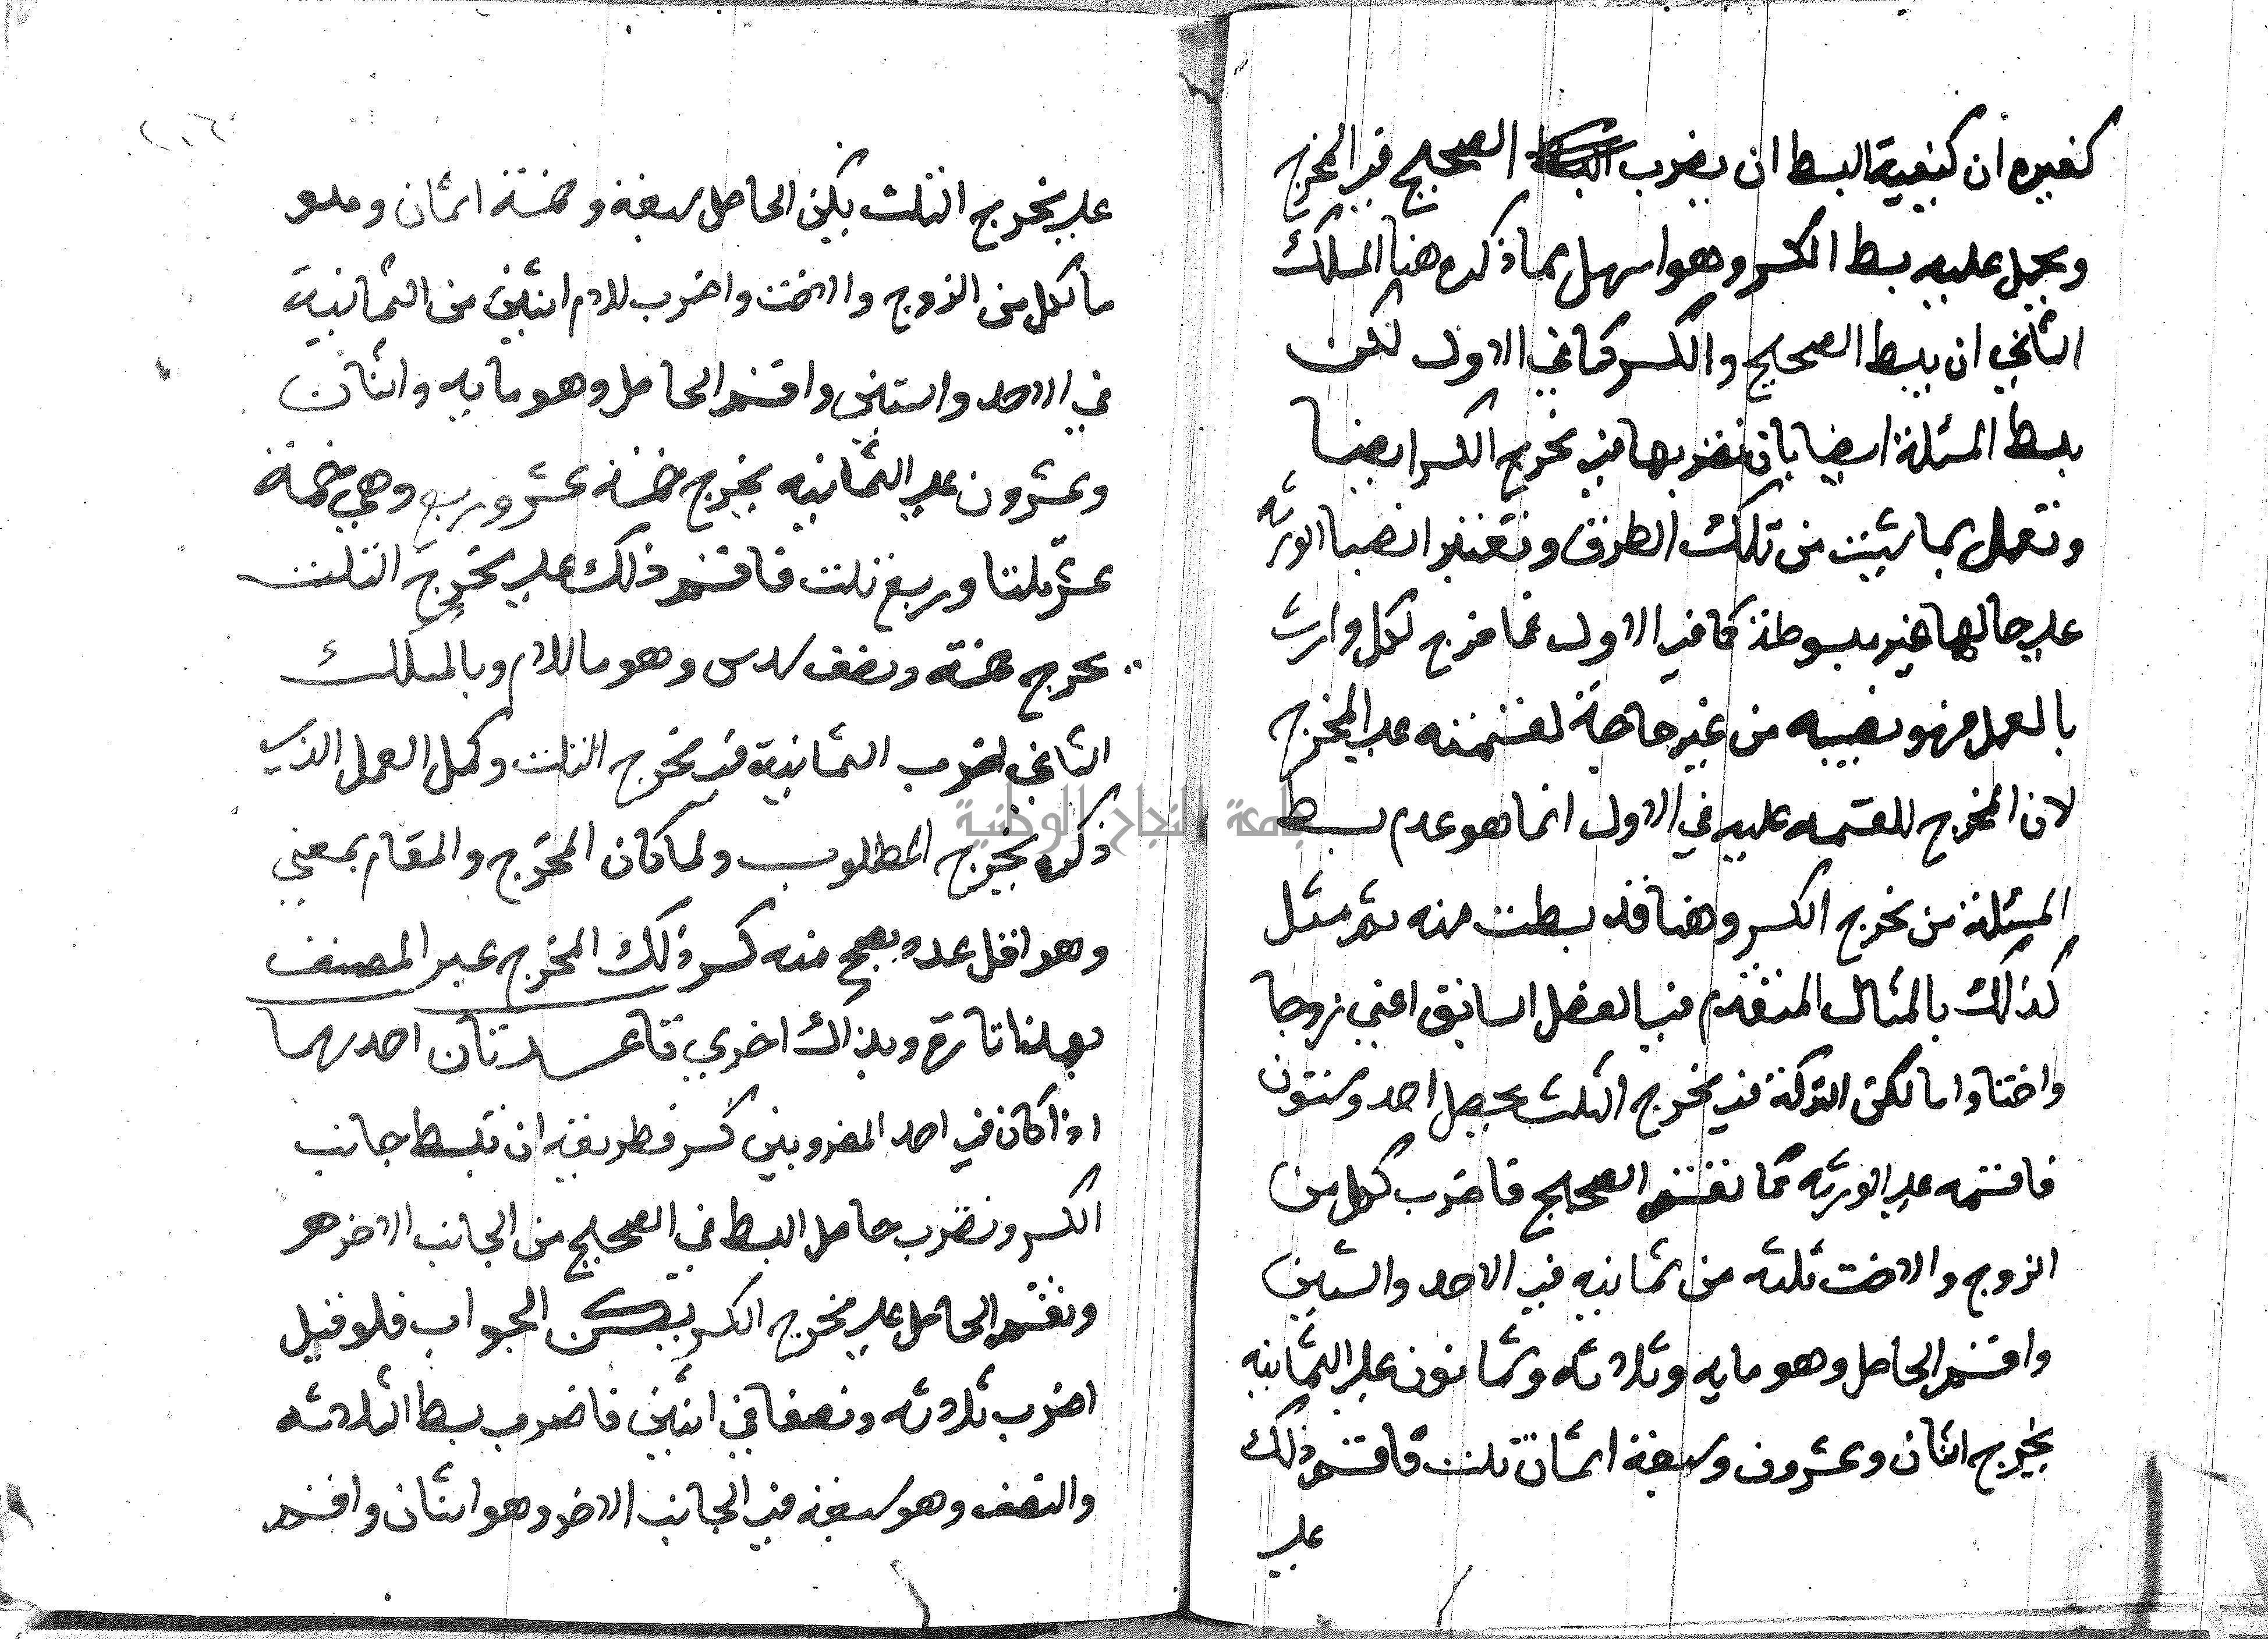 كغيره ان كيفية البسط ان يضرب الصحيح في المخرج
ويحمل عليه بسط الكسر وهو اسهل مما ذكره هنا المسلك
الثاني ان يبسط الصحيح والكسر كما في الاول لكن
بسط المسئلة ايضا بان تضربها في مخرج الكسر ايضا
وتعمل بما شيئت من تلك الطرق وتعتبر انصبا الورثه
علي حالها غير مبسوطة كما في الاول فما خرج لكل وارث
بالعمل فهو نصيبه من غير حاجة لقسمته علي المخرج
لان المخرج للقسمه عليه في الاول انما هو عدم بسط
المسئلة من مخرج الكسر وهنا قد بسطت منه ثم مثل
كذلك بالمثال المتقدم في الفصل السابق اعني زوجا
واختا واما لكن التركة في مخرج الثلث يحصل احد وستون
فاقسمه علي الورثه كما تقسم الصحيح فاضرب لكل من
الزوج والاخت ثلثه من ثمانيه في الاحد والستين
واقسم الحاصل وهو مايه وثلاثه وثمانون علي الثمانيه
يخرج اثنان وعشرون وسبعة اثمان ثلث فاقسم ذلك
علي
علي مخرج الثلث يكن الحاصل سبعة وخمسة اثمان وهو
ما لكل من الزوج والاخت واضرب للام اثنين من الثمانية
في الاحد والستين واقسم الحاصل وهو مايه واثنان
وعشرون علي الثمانيه يخرج خمسة عشر وربع وهي خمسة
عشر ثلثا وربع ثلث فاقسم ذلك علي مخرج الثلث
يخرج خمسة ونصف سدس وهو ما للام وبالمسلك
الثاني اضرب الثمانية في مخرج الثلث وكمل العمل الذي
ذكره يخرج المطلوب ولما كان المخرج والمقام بمعني
وهو اقل عدد يصح منه كسر ذلك المخرج عبر المصنف
بهذا تارة وبذاك اخري قاعدتان احديهما
اذا كان في احد المضروبين كسر فطريقه ان تبسط جانب
الكسر وتضرب حاصل البسط في الصحيح من الجانب الاخر
وتقسم الحاصل علي مخرج الكسر يكن الجواب فلو قيل
اضرب ثلاثه ونصفا في اثنين فاضرب بسط الثلاثه
والنصف وهو سبعه في الجانب الاخر وهو اثنان واقسم
جامعة النجاح الوطنية